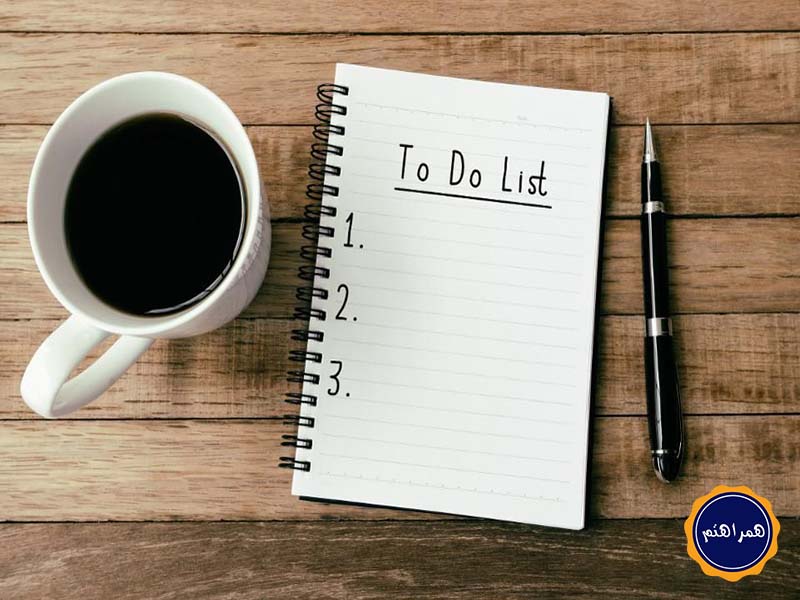 To Do List
1.
2.
3.
همراهتم